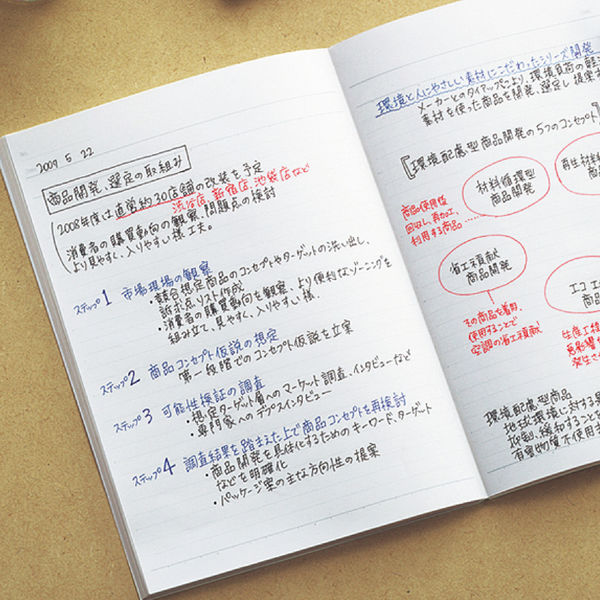 2009 5 22
商品開発、選定の取組み
2008年度は直営約30店舗の改装を予定
渋谷店、新宿店、池袋店など
消費者の購買動向の観察、問題点の検討
より見やすい、入りやすい様工夫。
ステップ1 市場現場の観察
・競合想定商品のコンセプトやターゲットの洗い出し、
訴求点リスト作成
・消費者の購買動向を観察、より便利なゾーニングを
組み立て、見やすく、入りやすい様。
ステップ2 商品コンセプト仮説の想定
第一段階でのコンセプト仮説を立案
ステップ3 可能性検証の調査
・想定ターゲット層へのマーケット調査、インタビューなど
・専門家へのデプスインタビュー
ステップ4 調査結果を踏まえた上で商品コンセプトを再検討
・商品開発を具体化するためのキーワード、ターゲット
などを明確化
・パッケージ案の主な方向性の提案
環境と人にやさしい素材にこだわったシリーズ開発
メーカーとのタイアップにより、環境負荷の軽
素材を使った商品を開発、選定し提案す
【環境配慮型商品開発の5つのコンセプト】
材料循環型
商品開発
再生材料
商品
商品使用後
回収し、再加工、
利用する商品……
省エネ貢献
商品開発
エコエ
商
その商品を着用、
使用することで
空調の省エネ貢献
生産工程
悪影響
発生させ
環境配慮型商品
地球環境に対する悪
抑制・緩和することを
有害物質不使用